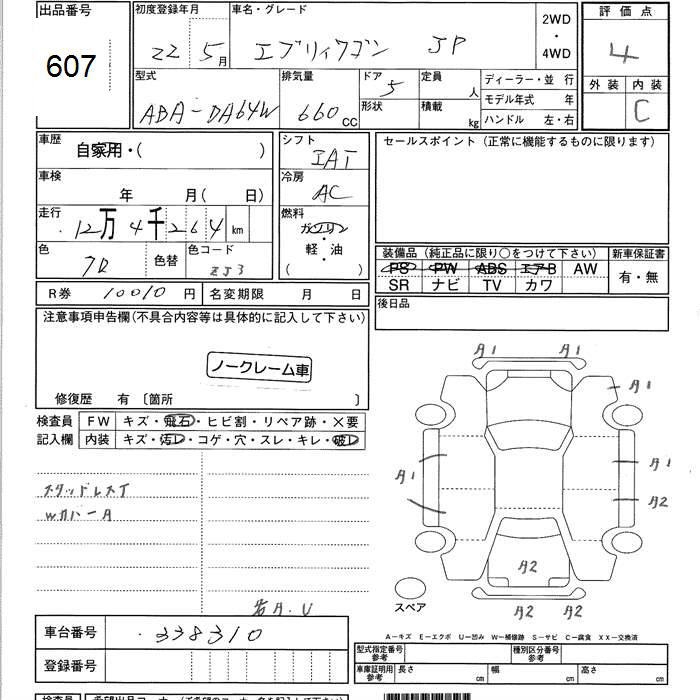 出品番号
607
初度登録年月
22 5月
車名・グレード
エブリィワゴン JP
2WD
・
4WD
評価点
4
型式
ABA-DA64W
排気量
660 cc
ドア
5
形状
定員
人
積載
kg
ディーラー・並 行
モデル年式 年
ハンドル 左・右
外装
内装
C
車歴
自家用・( )
車検
年 月( 日)
走行
12万4千264km
色
色替
色コード
ZJ3
シフト
IAT
冷房
AC
燃料
ガソリン
軽・油
( )
セールスポイント (正常に機能するものに限ります)
装備品 (純正品に限り○をつけて下さい)
新車保証書
PS PW ABS エアB AW
有・無
SR ナビ TV カワ
後日品
R券 10010 円
名変期限 月 日
注意事項申告欄(不具合内容等は具体的に記入して下さい)
ノークレーム車
修復歴 有 〔箇所 〕
検査員
記入欄
FW キズ・飛石・ヒビ割・リペア跡・×要
内装 キズ・汚レ・コゲ・穴・スレ・キレ・破レ
スタッドレスT
Wカバー A
A1 A1
A1
A1
A1
A2
A2
A2 A2
スペア
A-キズ E-エクボ U-凹み W-補修跡 S-サビ C-腐食 XX-交換済
車台番号
338310
登録番号
型式指定番号
参考
種別区分番号
参考
車庫証明用
参考
長さ cm
幅 cm
高さ cm